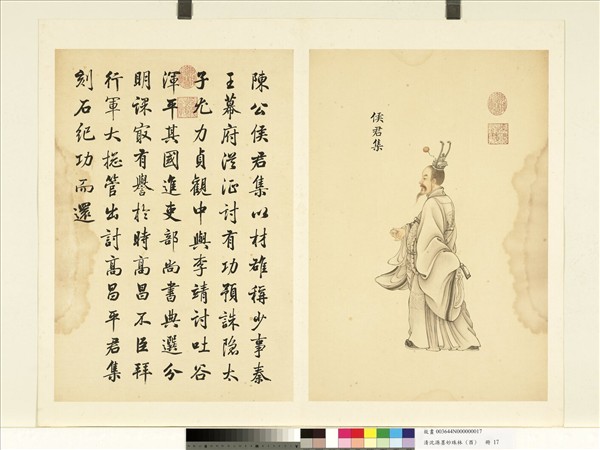 陳公侯君集以材雄稱少事秦
王幕府從征討有功預誅隱太
子尤力貞觀中與李靖討吐谷
渾平其國進吏部尚書典選分
明課最有譽於時高昌不臣拜
行軍大總管出討高昌平君集
刻石紀功而還
侯君集
故畫 003644N000000017
清沈振麟妙珠林（四） 冊 17